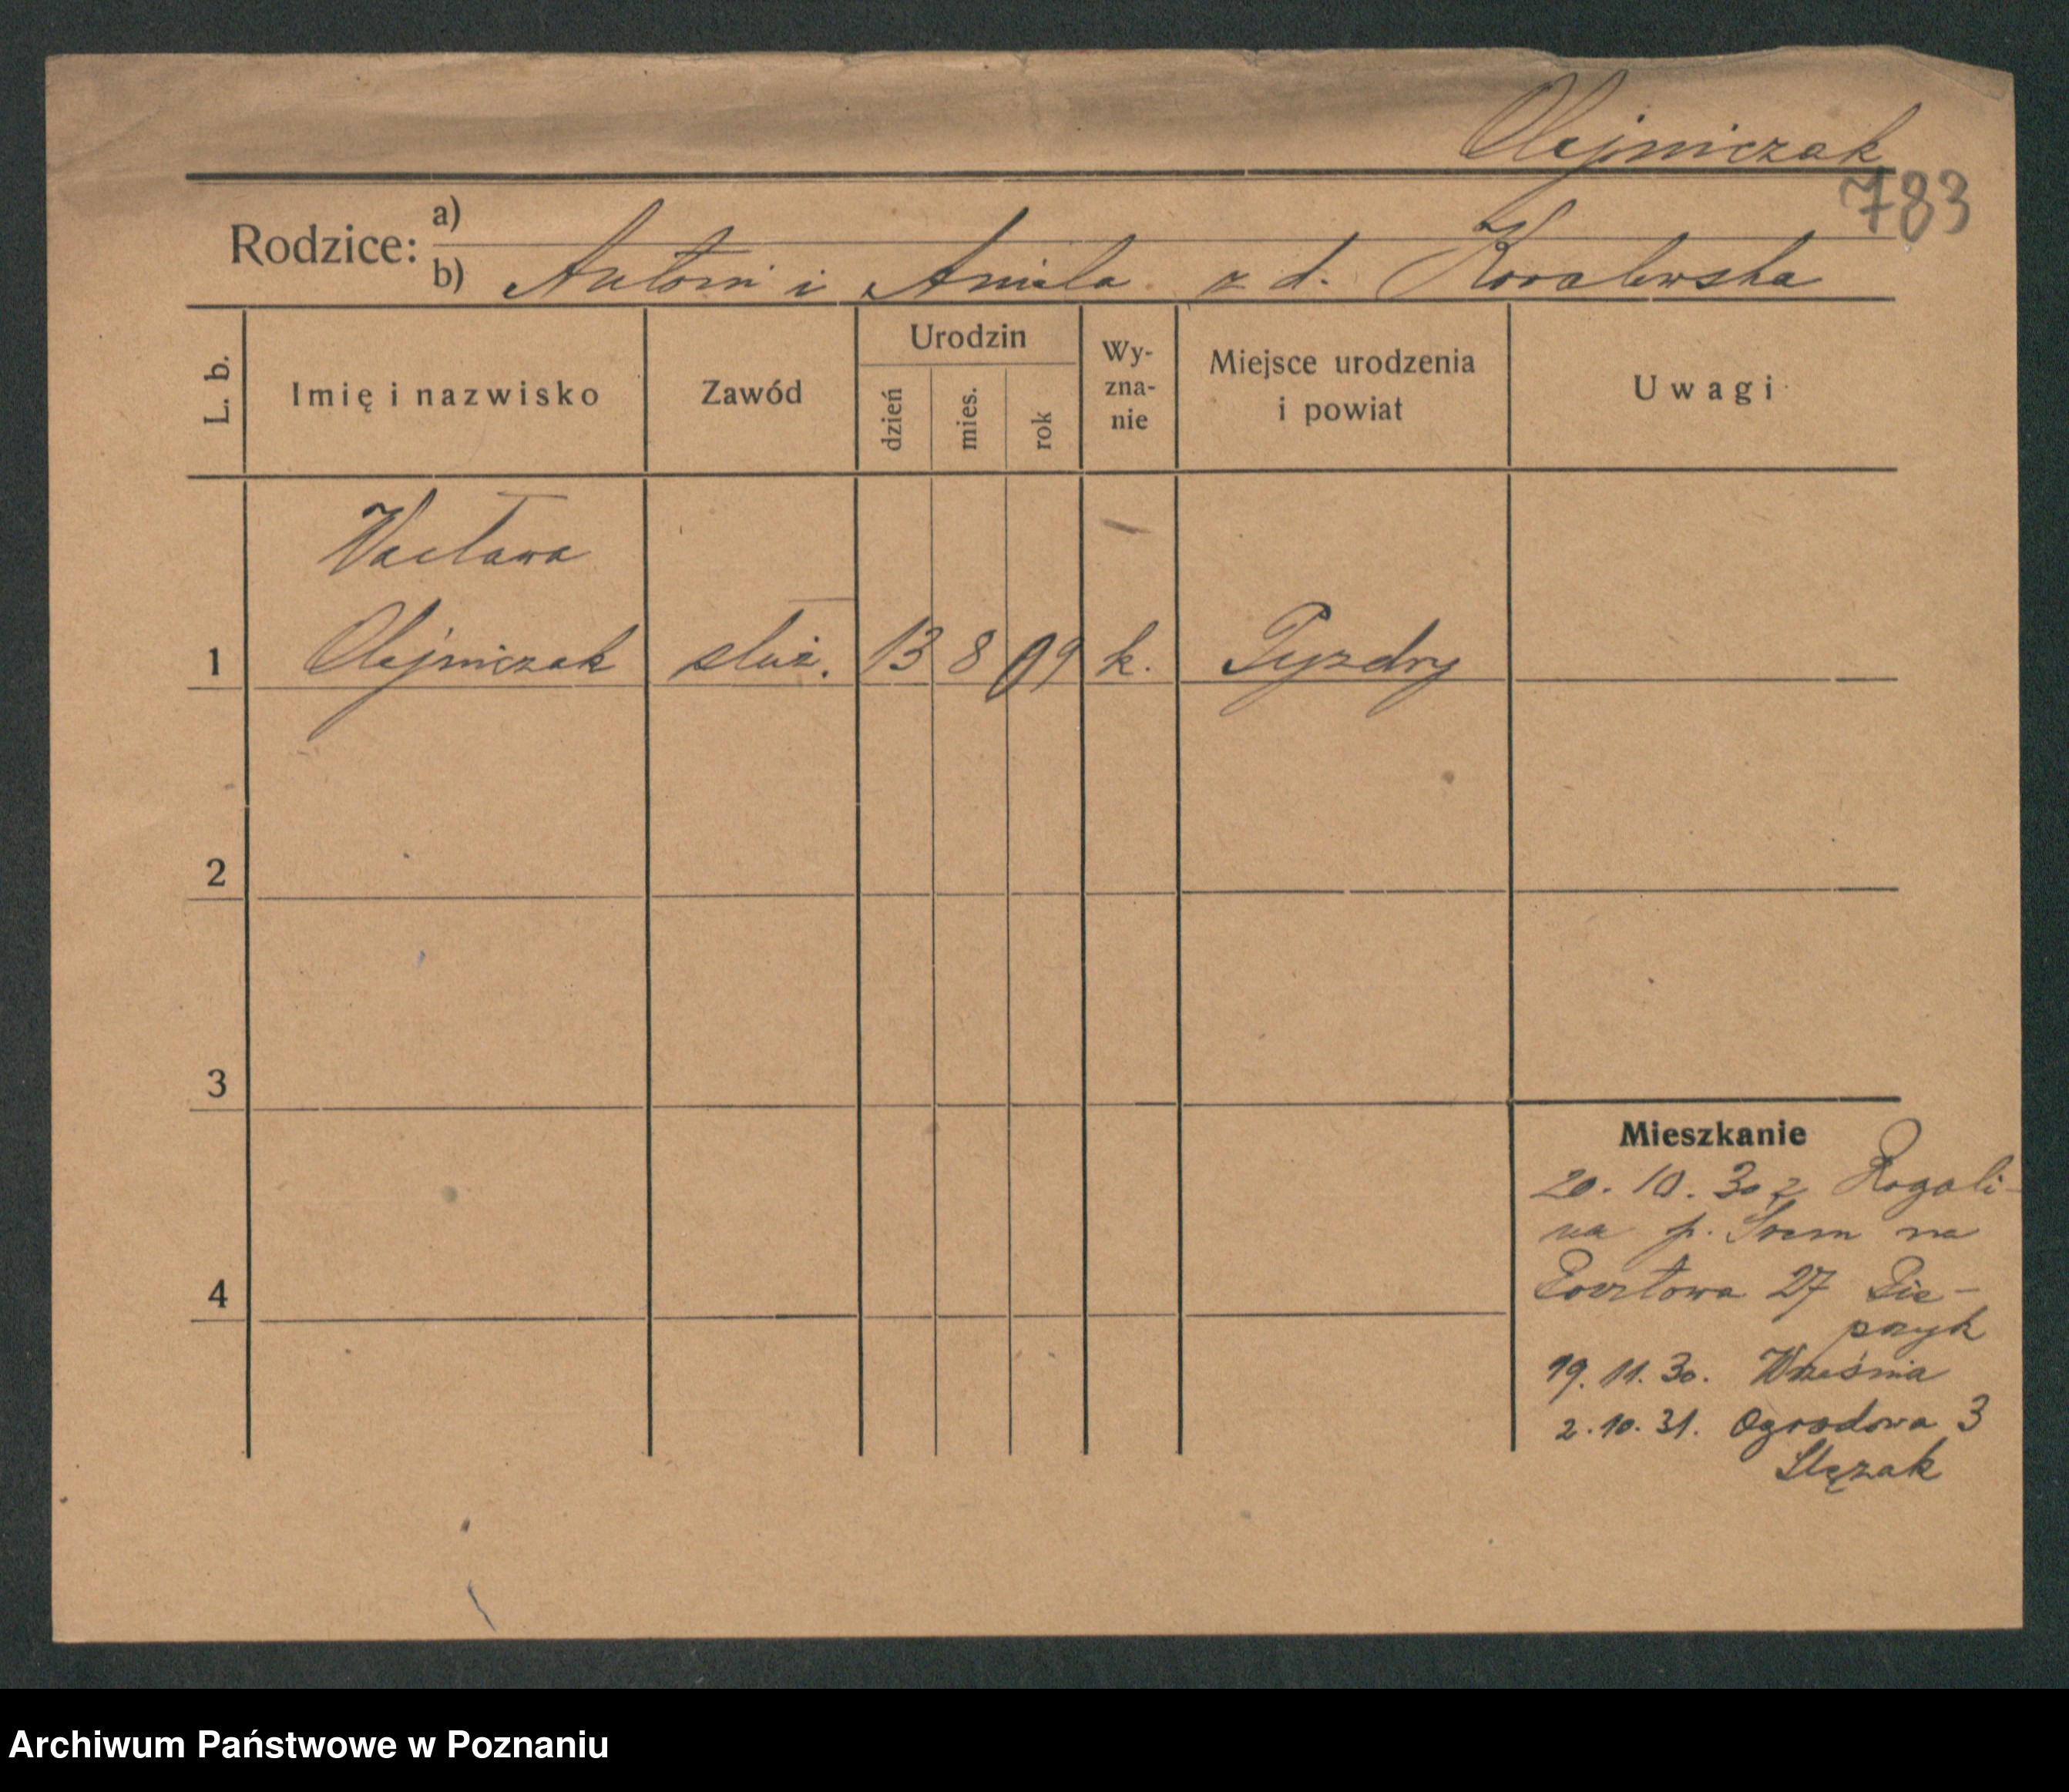 Olejniczak
783
Rodzice:
a)
b) Antoni i Aniela z d. Kowalewska
L. b.
Imię i nazwisko
Zawód
Urodzin
dzień
mies.
rok
Wy-
zna-
nie
Miejsce urodzenia
i powiat
Uwagi
Wacława
1 Olejniczak służ. 13 8 09 k. Pyzdry
2
3
4
Mieszkanie
20. 10. 30 z Rogali-
na p. Śrem na
Pocztowa 27 Pie-
przyk
19. 11. 30. Września
2. 10. 31. Ogrodowa 3
Ślęzak
Archiwum Państwowe w Poznaniu